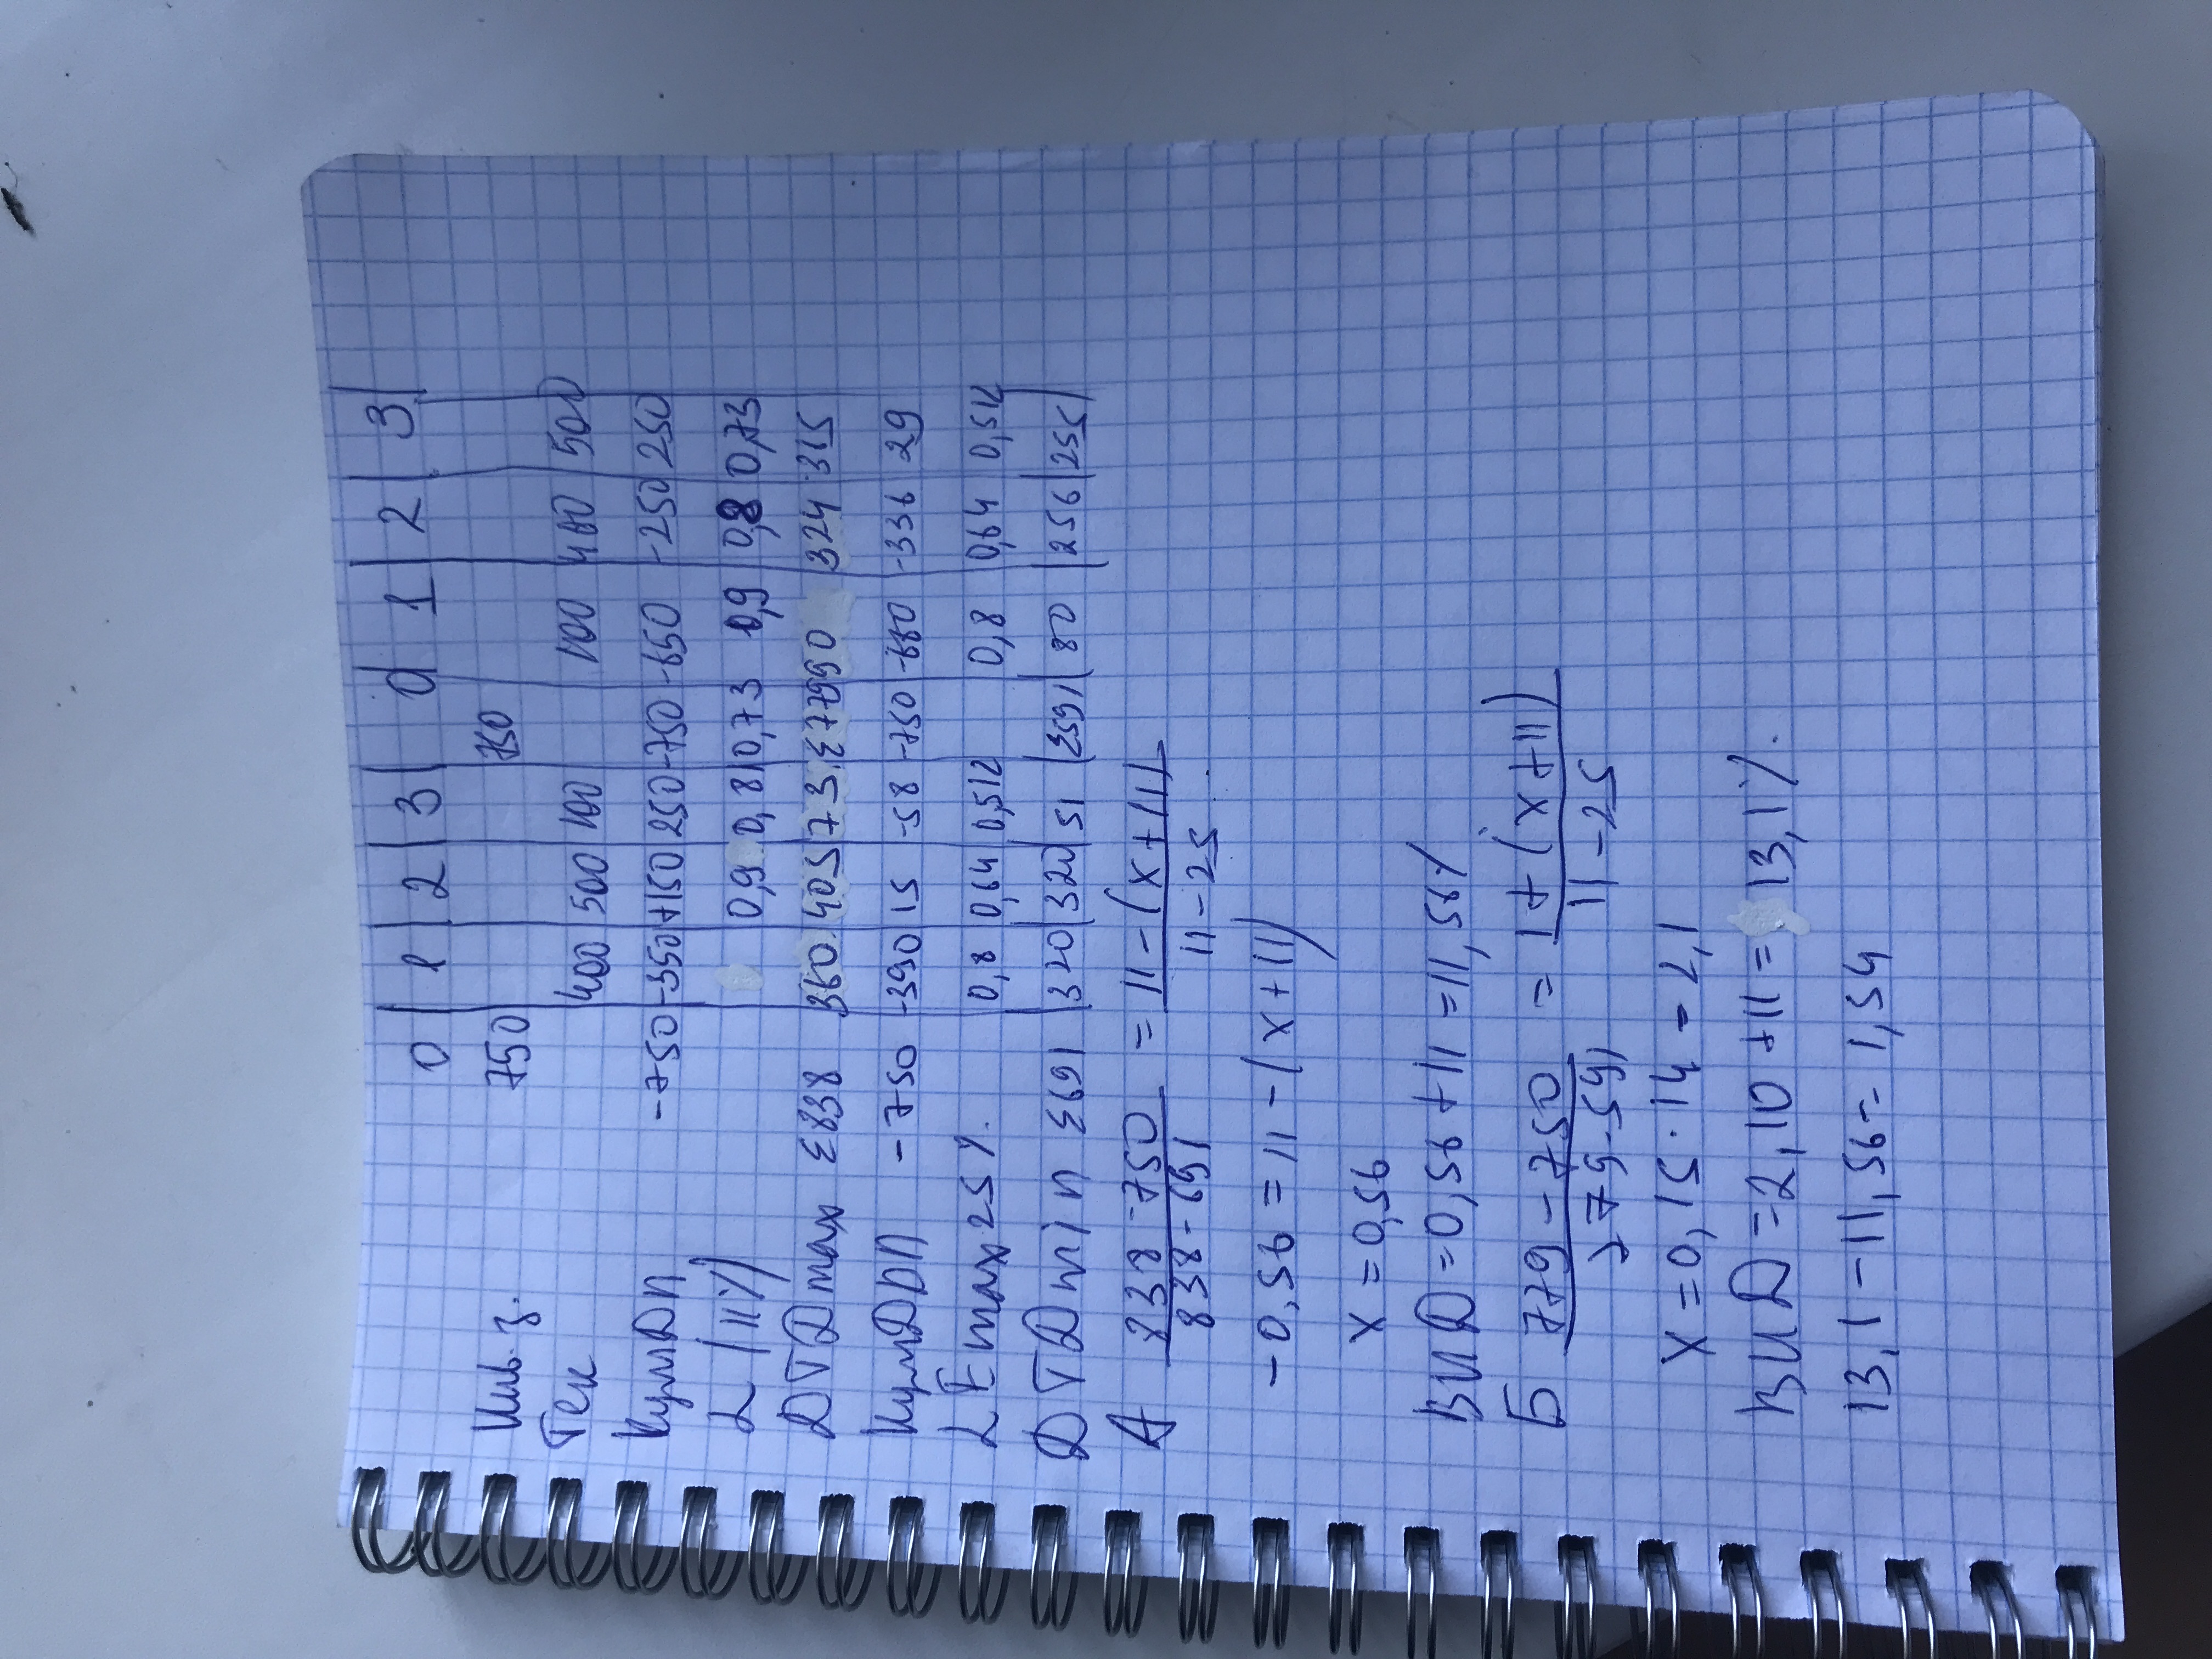 0 | 1 | 2 | 3 | 0 | 1 | 2 | 3 |
Инв. з. 750 | 750
Тек | 400 | 500 | 100 | 100 | 400 | 500
КумДП -750 | -350 | +150 | 250 | -750 | -650 | -250 | 250
L (11%) 0,9 | 0,8 | 0,73 | 0,9 | 0,8 | 0,73
ДТДmax Σ838 | 360 | 405 | 73 | Σ779 | 90 | 324 | 365
КумДДП -750 | -390 | 15 | -58 | -750 | -660 | -336 | 29
L Emax 25%. 0,8 | 0,64 | 0,512 | 0,8 | 0,64 | 0,512
ДТДmin Σ691 | 320 | 320 | 51 | Σ591 | 80 | 256 | 255 |
А 838-750 / 838-691 = 11-(x+11) / 11-25
-0,56 = 11-(x+11)
x = 0,56
ВИД = 0,56+11 = 11,56%
Б 779-750 / 779-591 = 1+(x+11) / 11-25
x = 0,15·14 = 2,1
ВИД = 2,10+11 = 13,1%.
13,1-11,56 = 1,54